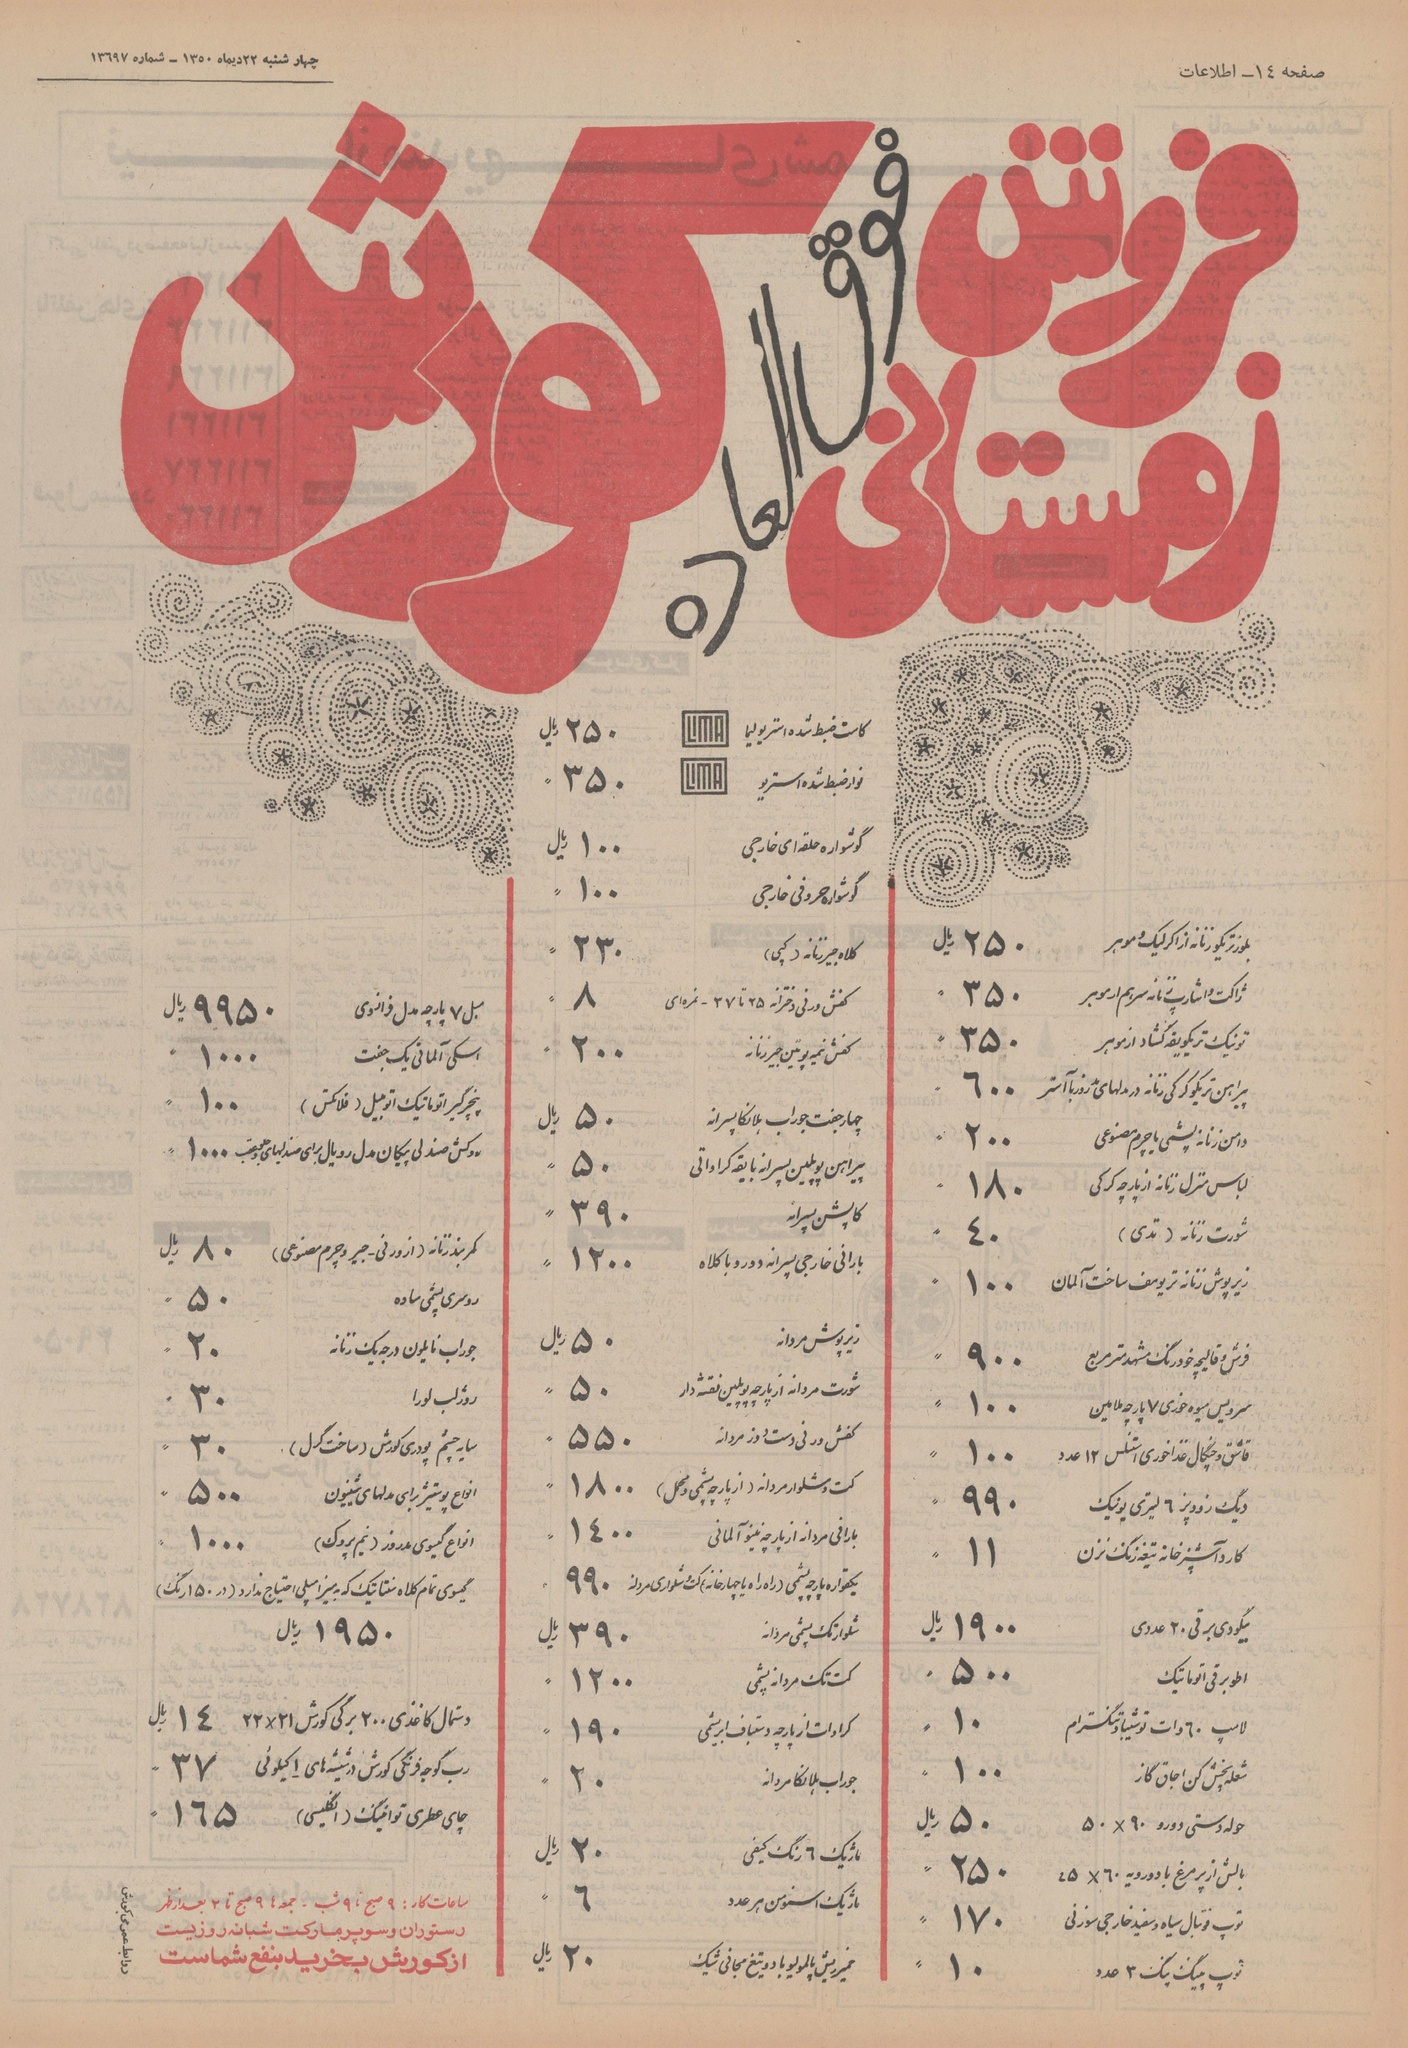 صفحه ۱۴ـ اطلاعات
چهارشنبه ۲۲ دیماه ۱۳۵۰ ـ شماره ۱۳۶۹۷
فروش
فوق العاده
زمستانی
کورش
کاست ضبط شده استریو لیما LIMA ۲۵۰ ریال
نوار ضبط شده استریو LIMA ۳۵۰ "
گوشواره حلقه ای خارجی ۱۰۰ ریال
گوشواره حروفی خارجی ۱۰۰ "
کلاه جیر زنانه (کپی) ۲۳۰ "
کفش ورنی دخترانه ۲۵ تا ۳۷ - نمره ای ۸ "
کفش نیمه پوتین جیر زنانه ۲۰۰ "
چهار جفت جوراب هلانکا پسرانه ۵۰ ریال
پیراهن پوپلین پسرانه با یقه کراواتی ۵۰ "
کاپشن پسرانه ۳۹۰ "
بارانی خارجی پسرانه دورو با کلاه ۱۲۰۰ "
زیرپوش مردانه ۵۰ ریال
شورت مردانه از پارچه پوپلین نقشه دار ۵۰ "
کفش ورنی دست دوز مردانه ۵۵۰ "
کت و شلوار مردانه (از پارچه پشمی و مخمل) ۱۸۰۰ "
بارانی مردانه از پارچه نینو آلمانی ۱۴۰۰ "
یکقواره پارچه پشمی (راه راه یا چهارخانه) کت و شلواری مردانه ۹۹۰ "
شلوار تک پشمی مردانه ۳۹۰ ریال
کت تک مردانه پشمی ۱۲۰۰ "
کراوات از پارچه دستباف ابریشمی ۱۹۰ "
جوراب هلانکا مردانه ۲۰ "
ماژیک ۶ رنگ کیفی ۲۰ ریال
ماژیک استومن هر عدد ۶ "
خمیر ریش پالمولیو با دو تیغ مجانی شیک ۲۰ ریال
بلوز تریکو زنانه از اکرلیک و موهر ۲۵۰ ریال
ژاکت و اشارپ زنانه سرهم از موهر ۳۵۰ "
تونیک تریکو یقه گشاد از موهر ۳۵۰ "
پیراهن تریکو کرکی زنانه در مدلهای مد روز با آستر ۶۰۰ "
دامن زنانه پشمی یا چرم مصنوعی ۲۰۰ "
لباس منزل زنانه از پارچه کرکی ۱۸۰ "
شورت زنانه (تدی) ۴۰ "
زیرپوش زنانه تریومف ساخت آلمان ۱۰۰ "
فرش و قالیچه خودرنگ مشهد متر مربع ۹۰۰ "
سرویس میوه خوری ۷ پارچه ملامین ۱۰۰ "
قاشق و چنگال غذاخوری استنلس ۱۲ عدد ۱۰۰ "
دیگ زودپز ۶ لیتری یونیک ۹۹۰ "
کارد آشپزخانه تیغه زنگ نزن ۱۱ "
بیگودی برقی ۲۰ عددی ۱۹۰۰ ریال
اطو برقی اتوماتیک ۵۰۰ "
لامپ ۶۰ وات توشیبا و تنگسترام ۱۰ "
شعله پخش کن اجاق گاز ۱۰۰ "
حوله دستی دورو ۹۰ × ۵۰ ۵۰ ریال
بالش از پر مرغ با دو رویه ۶۰ × ۴۵ ۲۵۰ "
توپ فوتبال سیاه و سفید خارجی سوزنی ۱۷۰ "
توپ پینگ پنگ ۳ عدد ۱۰ "
مبل ۷ پارچه مدل فرانسوی ۹۹۵۰ ریال
اسکی آلمانی یک جفت ۱۰۰۰ "
پنچرگیر اتوماتیک اتومبیل (فلاتکس) ۱۰۰ "
روکش صندلی پیکان مدل رویال برای صندلیهای جلو و عقب ۱۰۰۰ "
کمربند زنانه (از ورنی - جیر و چرم مصنوعی) ۸۰ ریال
روسری پشمی ساده ۵۰ "
جوراب نایلون درجه یک زنانه ۲۰ "
روژ لب لورا ۳۰ "
سایه چشم پودری کورش (ساخت گرل) ۳۰ "
انواع پوستیژ برای مدلهای شینیون ۵۰۰ "
انواع گیسوی مد روز (نیم پروک) ۱۰۰۰ "
گیسوی تمام کلاه سنتاتیک که به میزامپلی احتیاج ندارد (در ۱۵۰ رنگ)
۱۹۵۰ ریال
دستمال کاغذی ۲۰۰ برگی کورش ۲۱×۲۲ ۱۴ ریال
رب گوجه فرنگی کورش در شیشه های ۱ کیلوئی ۳۷ "
چای عطری توانینگ (انگلیسی) ۱۶۵ "
ساعات کار: ۹ صبح تا ۹ شب - جمعه ها ۹ صبح تا ۲ بعد از ظهر
رستوران و سوپرمارکت شبانه روزیست
از کورش بخرید بنفع شماست
روابط عمومی کورش